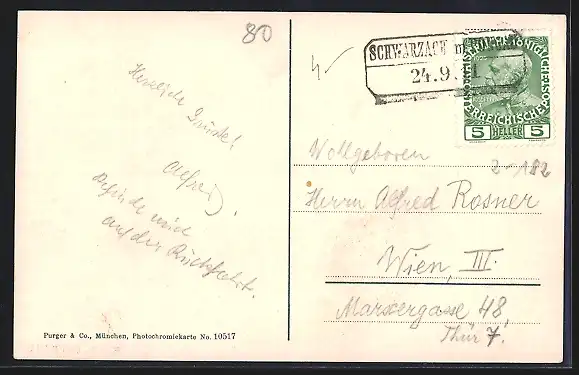 80
Herzliche Grüße!
Alfred.
Befinde mich
auf der Rückfahrt.
Purger & Co., München, Photochromiekarte No. 10517
SCHWARZACH
24.9.
5 HELLER 5
Wollgeboren
2-182
Herrn Alfred Rosner
Wien, III.
Marxergasse 48,
Thür 7.